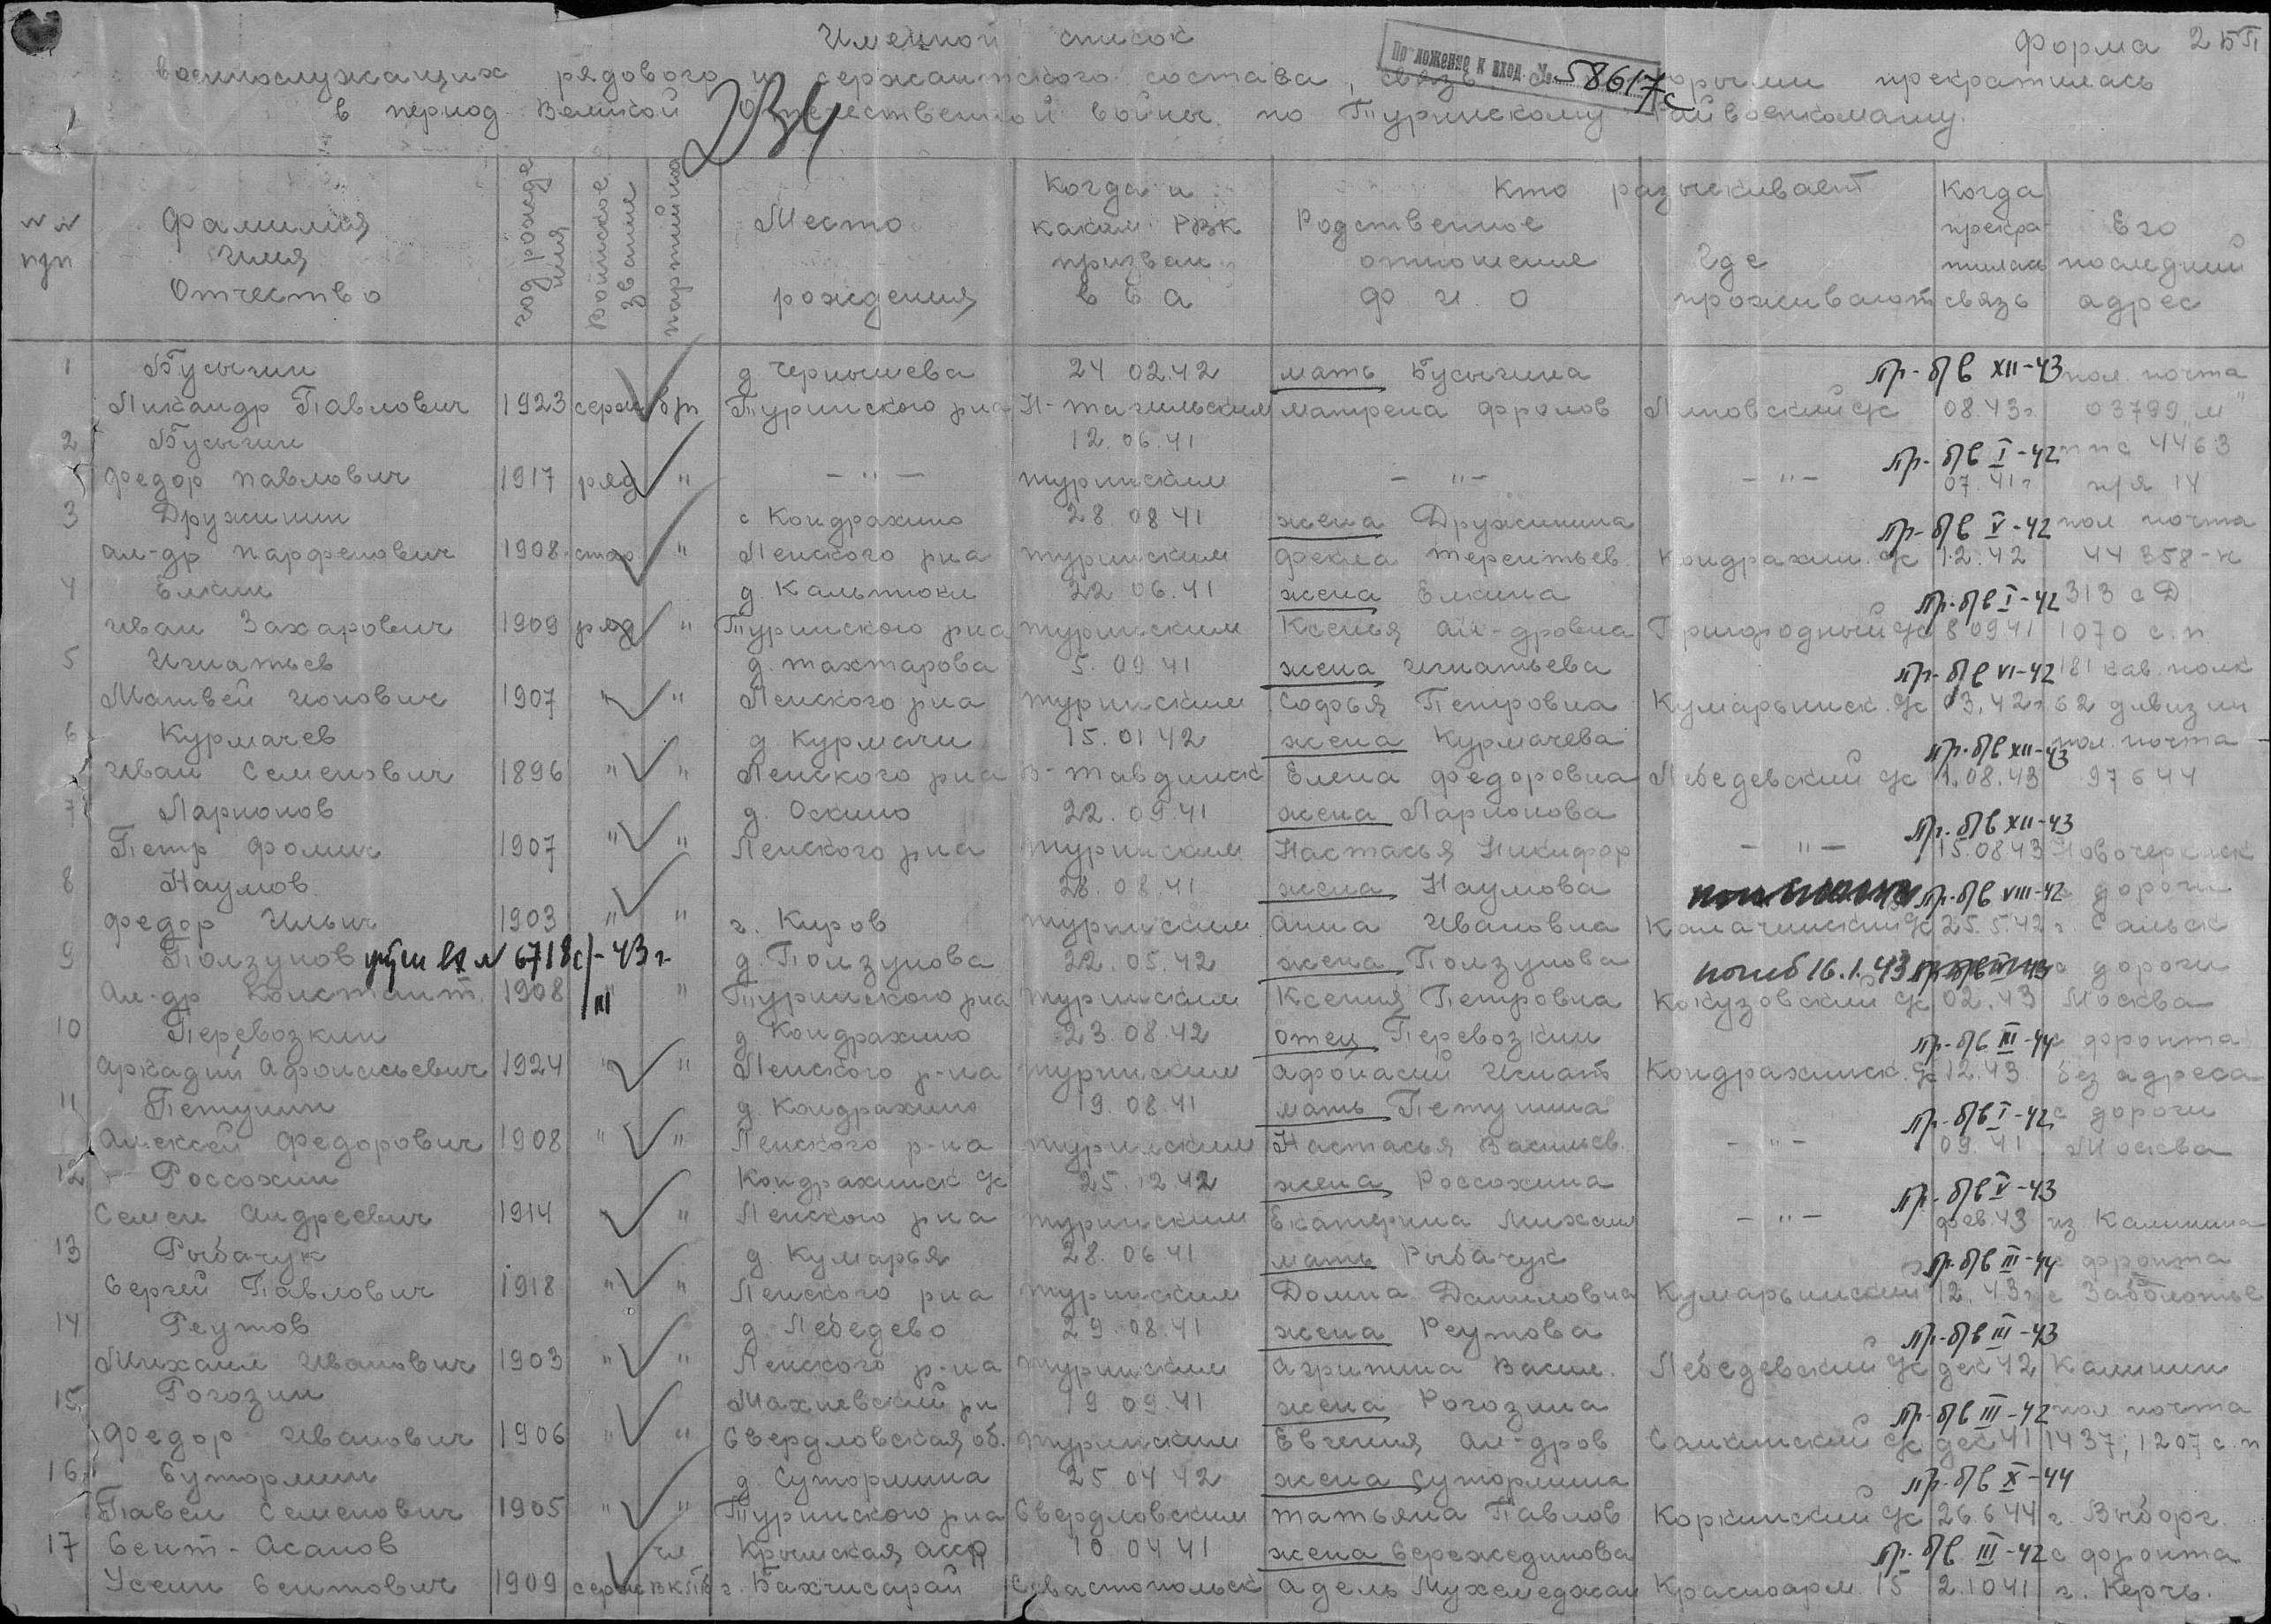 Именной список
Форма 2 БП
Приложение к вход. № 58617с
военнослужащих рядового и сержантского состава, связь с которыми прекратилась
в период Великой Отечественной войны по Туринскому райвоенкомату.
234
№ № п/п
Фамилия Имя Отчество
год рождения
Воинское звание
партийность
Место рождения
Когда и каким РВК призван в СА
Кто разыскивает
Родственное отношение Ф И. О
Где проживают
Когда прекратилась связь
Его последний адрес
1 Бусыгин д Чернышева 24 02.42 мать Бусыгина пр-б/в XII-43 пол. почта
Никандр Павлович 1923 серж б/п Туринского р на Н-Тагильским Матрена Фролов 08.43г. 03799 "М"
2 Бусыгин 12.06.41 пр-б/в I-42 ппс 4463
Федор Павлович 1917 ряд " - " - Туринским - " - - " - 07.41г п/я 14
3 Дружинин с Кондрахино 28 08 41 жена Дружинина пр-б/в V-42 пол почта
Ал-др Парфенович 1908 стар " Ленского р на Туринским Фекла Терентьев. Кондрахин. с/с 1.2.42 44358-к
4 Елкин д. Кальтюки 22 06.41 жена Елкина пр-б/в I-42 313 с Д
Иван Захарович 1909 ряд " Туринского р на Туринским Ксенья Ал-дровна Пригородный с/с 8 09 41 1070 с.п
5 Игнатьев д. Тахтарова 5.09.41 жена Игнатьева пр-б/в VI-42 181 кав. полк
Матвей Ионович 1907 " " Ленского р на Туринским Софья Петровна Кумарьинск. с/с 03.42г. 62 дивизии
6 Курмачев д Курмачи 15.01 42 жена Курмачева пр-б/в XII-43 пол. почта
Иван Семенович 1896 " " Ленского р на В-Тавдинск Елена Федоровна Лебедевский с/с 1.08.43 97644
7 Ларионов д. Оскино 22.09.41 жена Ларионова пр-б/в XII-43
Петр Фомич 1907 " " Ленского р на Туринским Настасья Никифор - " - 15.08 43 Новочеркаск
8 Наумов 28.08.41 жена Наумова пр-б/в VIII-42 с дороги
Федор Ильич 1903 " " г. Киров Туринским Анна Ивановна с/с 25.5.42 г. Сальск
9 Ползунов 6718с/-43г. д. Ползунова 22.05.42 жена Ползунова погиб 16.1.43 с дороги
Ал-др Констант. 1908 III " Туринского р на Туринским Ксения Петровна Кокузовский с/с 02.43 Москва
10 Перевозкин д Кондрахино 23 08.42 отец Перевозкин пр-б/в III-44 с фронта
Аркадий Афонасьевич 1924 " " Ленского р-на Туринским Афонасий Игнат Кондрахинск. с/с 12.43 без адреса
11 Петунин д. Кондрахино 19.08.41 мать Петунина пр-б/в I-42 с дороги
Алексей Федорович 1908 " " Ленского р-на Туринским Настасья Васильев. - " - 09.41 Москва
12 Россохин Кондрахинск с/с 25.12 42 жена Россохина пр-б/в V-43
Семен Андреевич 1914 " " Ленского р на Туринским Екатерина Михаил - " - фев.43 из Калинина
13 Рыбачук д Кумарья 28.06.41 мать Рыбачук пр-б/в III-44 с фронта
Сергей Павлович 1918 " " Ленского р на Туринским Домна Даниловна Кумарьинский 12.43г. с Заболотье
14 Реутов д. Лебедево 29.08.41 жена Реутова пр-б/в III-43
Михаил Иванович 1903 " " Ленского р-на Туринским Агрипина Васил. Лебедевский с/с дек 42 Калинин
15 Рогозин Махневский р н 19 09.41 жена Рогозина пр-б/в III-42 пол почта
Федор Иванович 1906 " " Свердловская об. Туринским Евгения Ал-дров с/с дек 41 1437; 1207 с.п
16 Сутормин д. Сутормина 25 04 42 жена Сутормина пр-б/в X-44
Павел Семенович 1905 " " Туринского р на Свердловским Татьяна Павлов Коркинский с/с 26.6 44 г. Выборг.
17 Сеит-Асанов чл Крымская Асср 10 04 41 жена пр-б/в III-42 с фронта
Усеин Сеитович 1909 серж ВКПб г. Бахчисарай Севастопольск Адель Мухамеджан Красноарм. 15 2.10 41 г. Керчь.